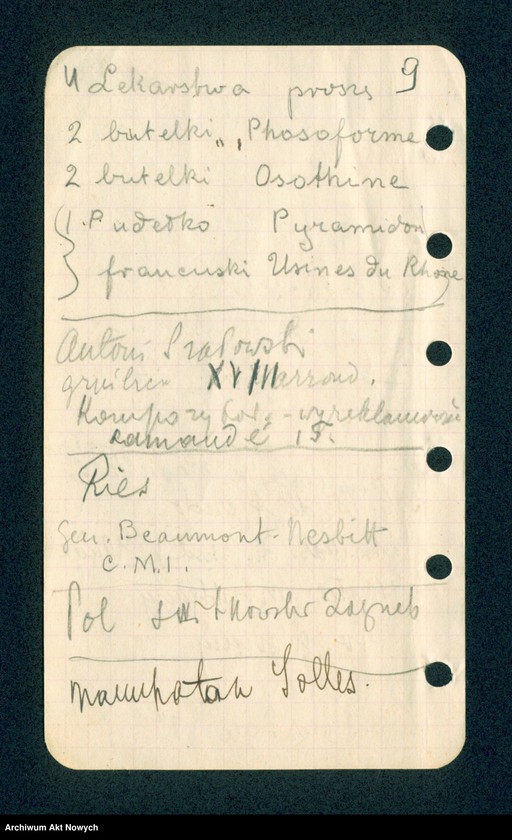 Lekarstwa proszę 9
2 butelki „ Phosoforme
2 butelki Osothine
1. Pudełko Pyramidon
francuski Usines du Rhone
Antoni Szałowski
XVIII arrond.
Kompozytor -
Ries
Gen. Beaumont-Nesbitt
C.M.I.
Zagreb
Solles.
Archiwum Akt Nowych